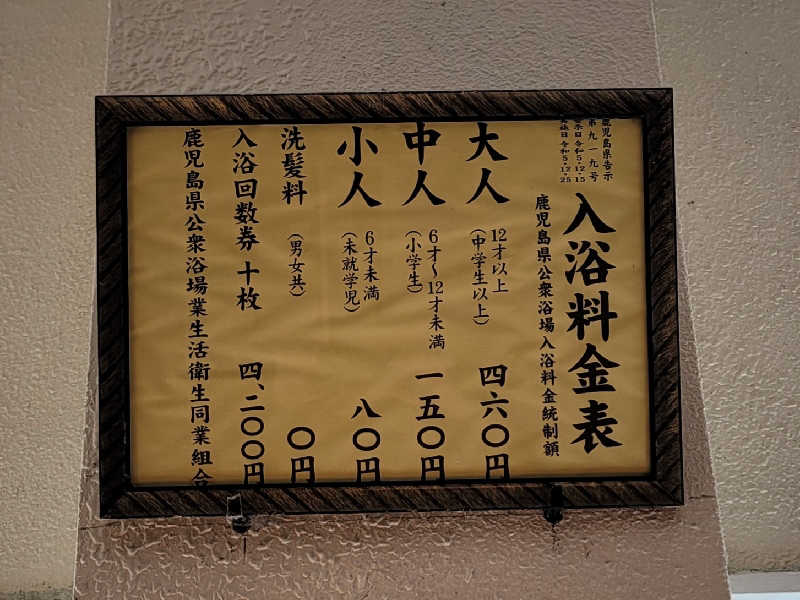 鹿児島県告示
第九一九号
告示日 令和5・12・15
実施日 令和5・12・25
入浴料金表
鹿児島県公衆浴場入浴料金統制額
大人 12才以上(中学生以上) 四六〇円
中人 6才~12才未満(小学生) 一五〇円
小人 6才未満(未就学児) 八〇円
洗髪料(男女共) 〇円
入浴回数券 十枚 四、二〇〇円
鹿児島県公衆浴場業生活衛生同業組合